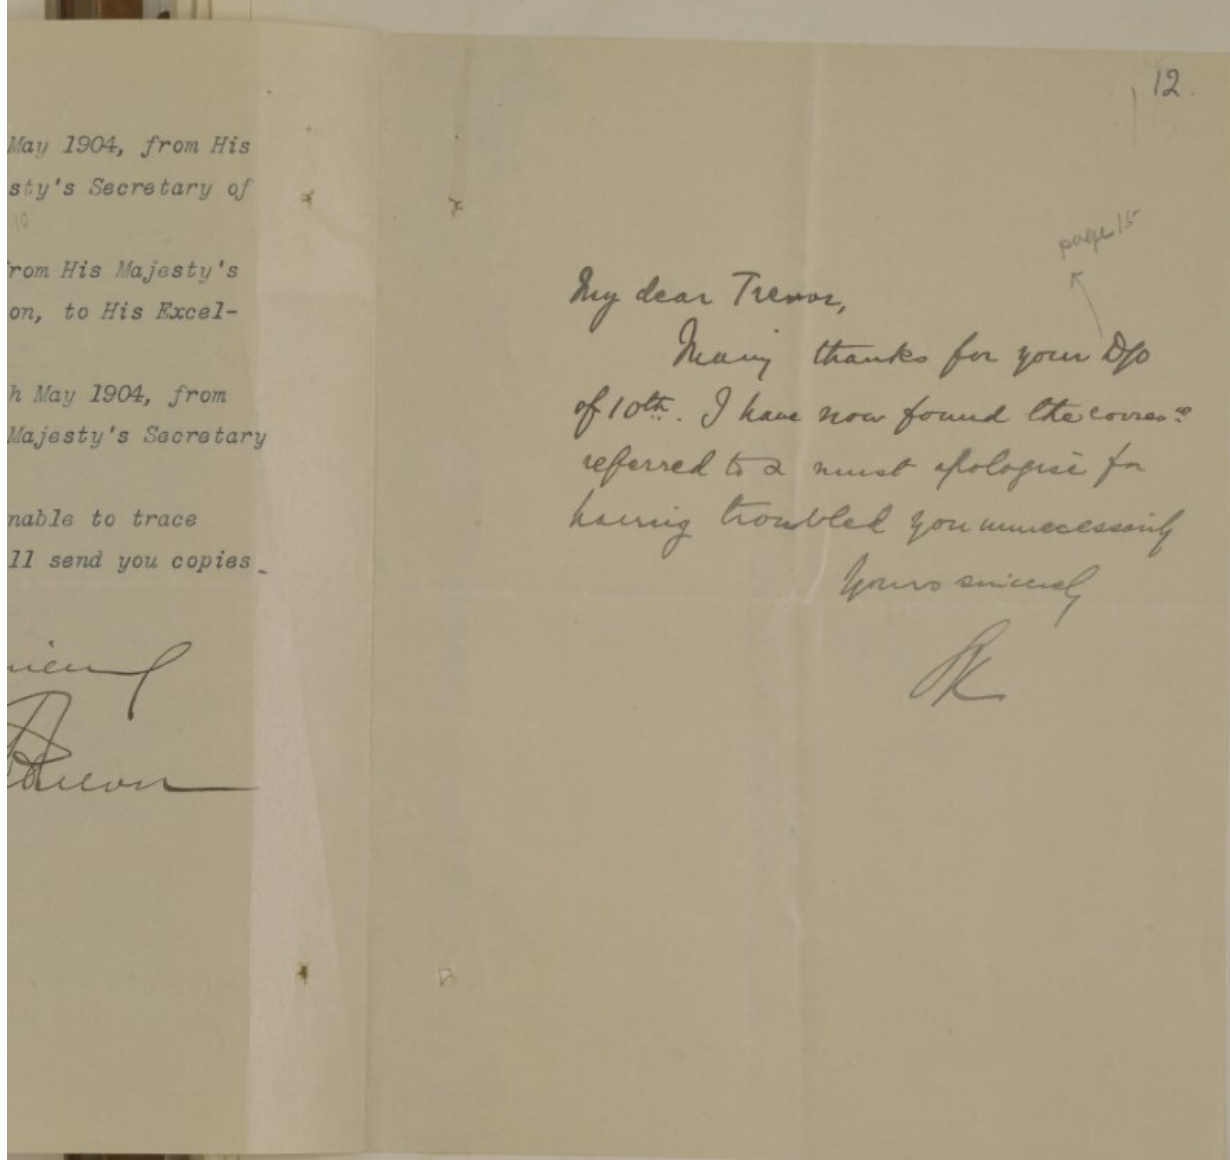 May 1904, from His
sty's Secretary of
10
rom His Majesty's
on, to His Excel-
h May 1904, from
Majesty's Secretary
nable to trace
ll send you copies
Trevor
12.
page 15
My dear Trevor,
Many thanks for your D/O
of 10th. I have now found the corres:ce
referred to & must apologise for
having troubled you unnecessarily
Yours sincerely